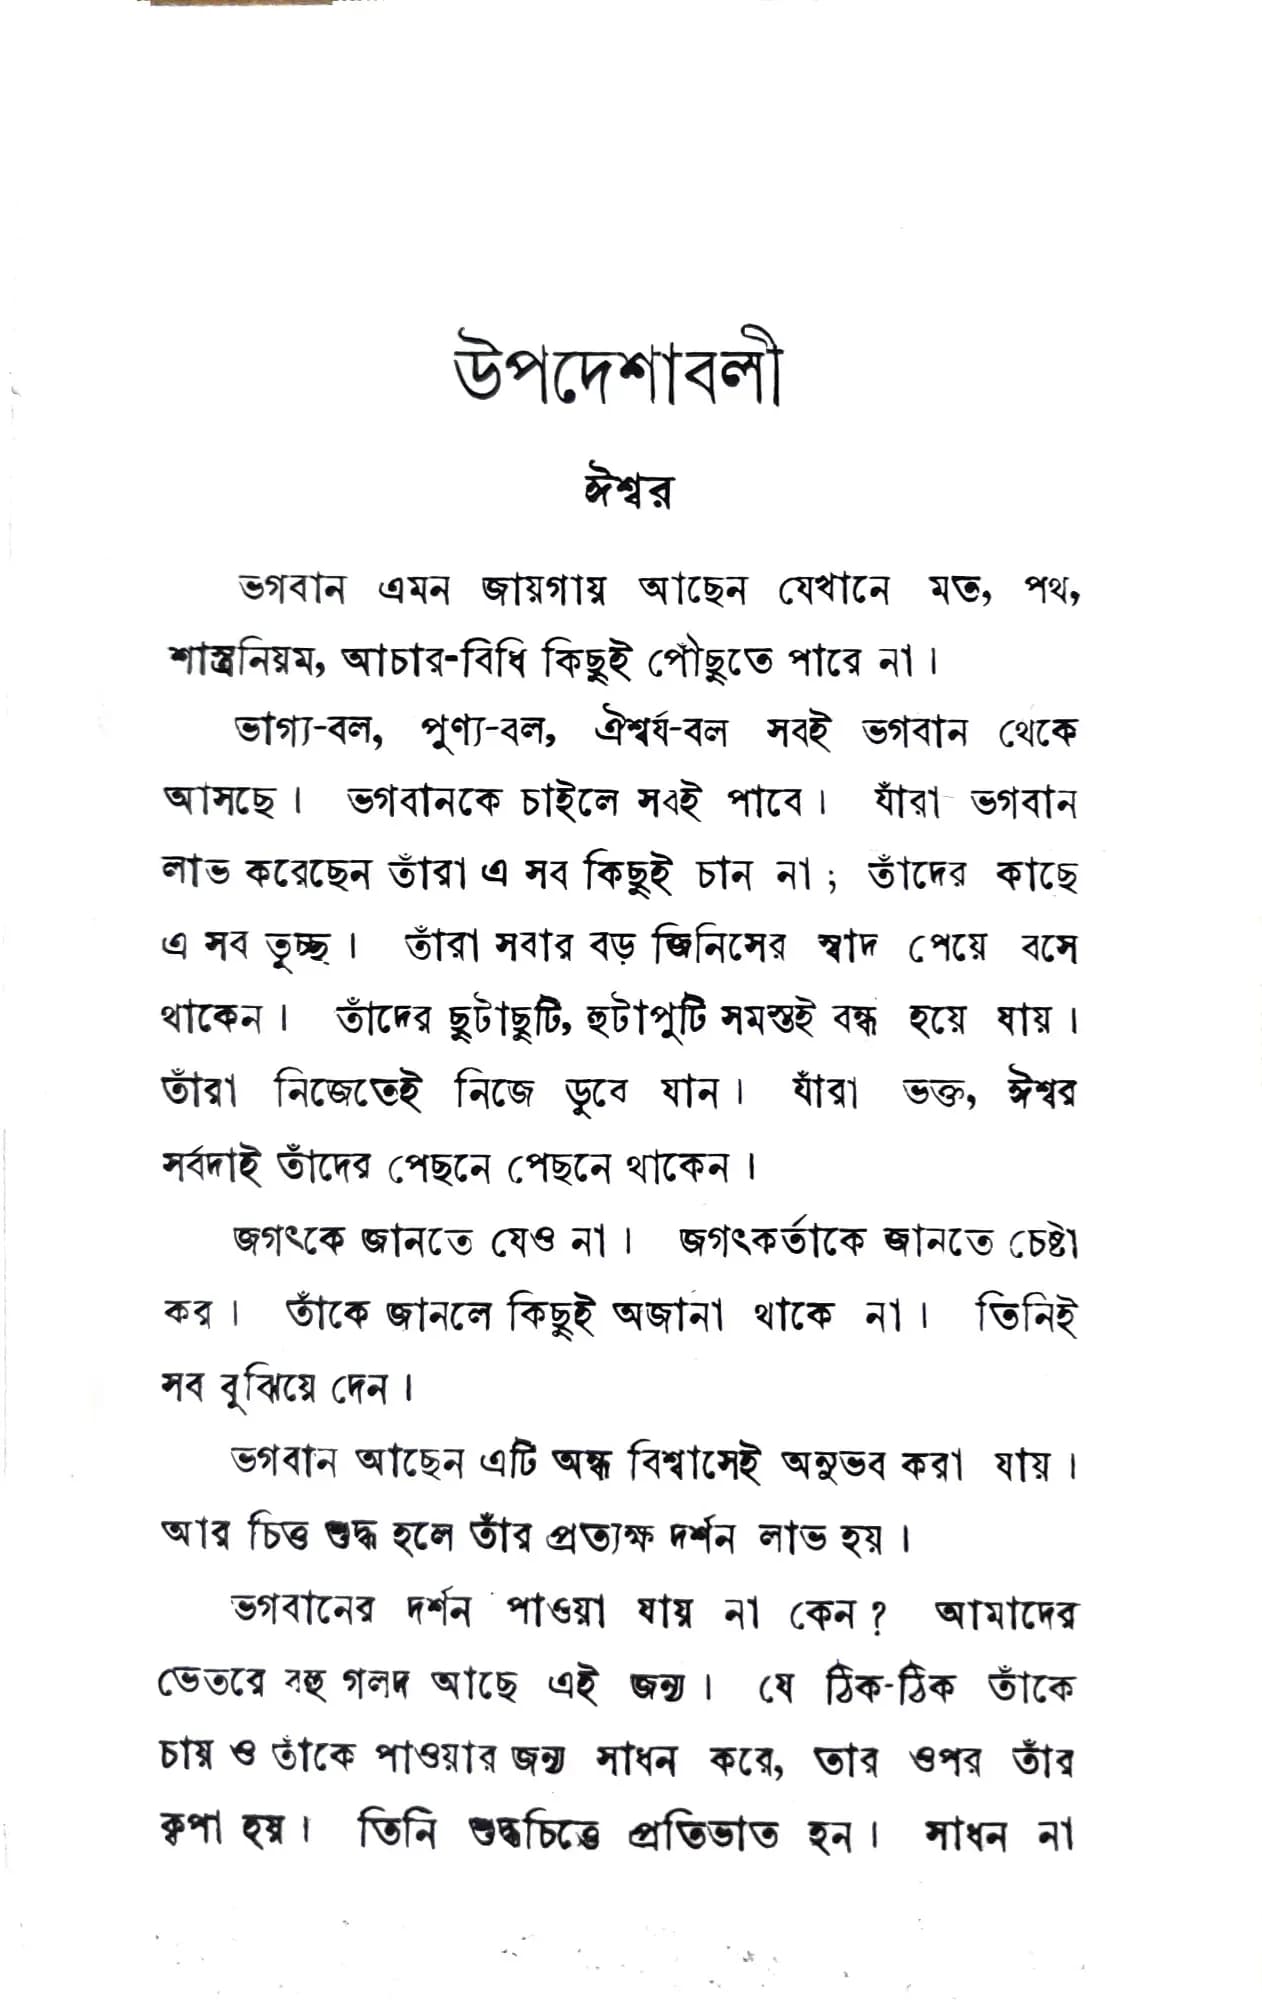 উপদেশাবলী
ঈশ্বর
ভগবান এমন জায়গায় আছেন যেখানে মত, পথ,
শাস্ত্রনিয়ম, আচার-বিধি কিছুই পৌঁছুতে পারে না।
ভাগ্য-বল, পুণ্য-বল, ঐশ্বর্য-বল সবই ভগবান থেকে
আসছে। ভগবানকে চাইলে সবই পাবে। যাঁরা ভগবান
লাভ করেছেন তাঁরা এ সব কিছুই চান না; তাঁদের কাছে
এ সব তুচ্ছ। তাঁরা সবার বড় জিনিসের স্বাদ পেয়ে বসে
থাকেন। তাঁদের ছুটাছুটি, হুটাপুটি সমস্তই বন্ধ হয়ে যায়।
তাঁরা নিজেতেই নিজে ডুবে যান। যাঁরা ভক্ত, ঈশ্বর
সর্বদাই তাঁদের পেছনে পেছনে থাকেন।
জগৎকে জানতে যেও না। জগৎকর্তাকে জানতে চেষ্টা
কর। তাঁকে জানলে কিছুই অজানা থাকে না। তিনিই
সব বুঝিয়ে দেন।
ভগবান আছেন এটি অন্ধ বিশ্বাসেই অনুভব করা যায়।
আর চিত্ত শুদ্ধ হলে তাঁর প্রত্যক্ষ দর্শন লাভ হয়।
ভগবানের দর্শন পাওয়া যায় না কেন? আমাদের
ভেতরে বহু গলদ আছে এই জন্য। যে ঠিক-ঠিক তাঁকে
চায় ও তাঁকে পাওয়ার জন্য সাধন করে, তার ওপর তাঁর
কৃপা হয়। তিনি শুদ্ধচিত্তে প্রতিভাত হন। সাধন না